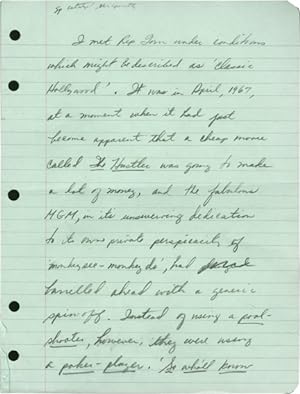 I met Rip Torn under conditions
which might be described as 'classic
Hollywood'. It was in April, 1967,
at a moment when it had just
become apparent that a cheap movie
called The Hustler was going to make
a lot of money, and the fabulous
MGM, in its unswerving dedication
to its own private perspicacity of
'monkey see - monkey do', had
barrelled ahead with a generic
spin-off. Instead of using a pool-
shooter, however, they were using
a poker-player. 'So who'll know